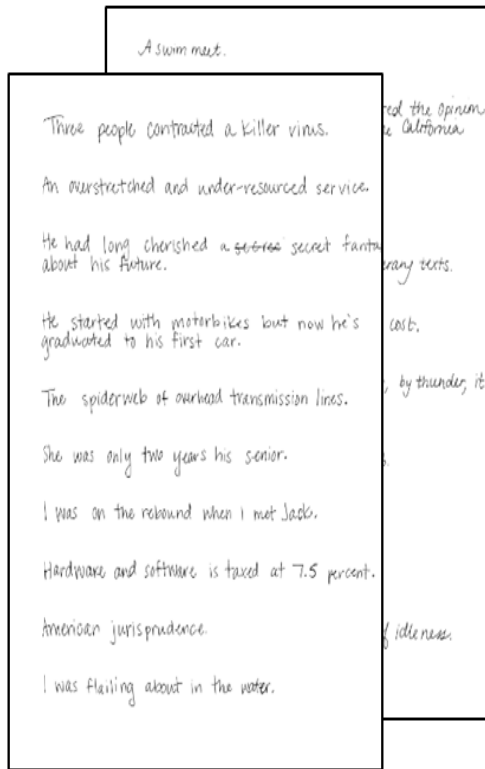 A swim meet.
red the opinion
California
Three people contracted a killer virus.
An overstretched and under-resourced service.
He had long cherished a secret
about his future.
rary texts.
He started with motorbikes but now he's
graduated to his first car.
cost.
The spiderweb of overhead transmission lines.
, by thunder, it
She was only two years his senior.
I was on the rebound when I met Jack.
Hardware and software is taxed at 7.5 percent.
American jurisprudence.
idleness.
I was flailing about in the water.